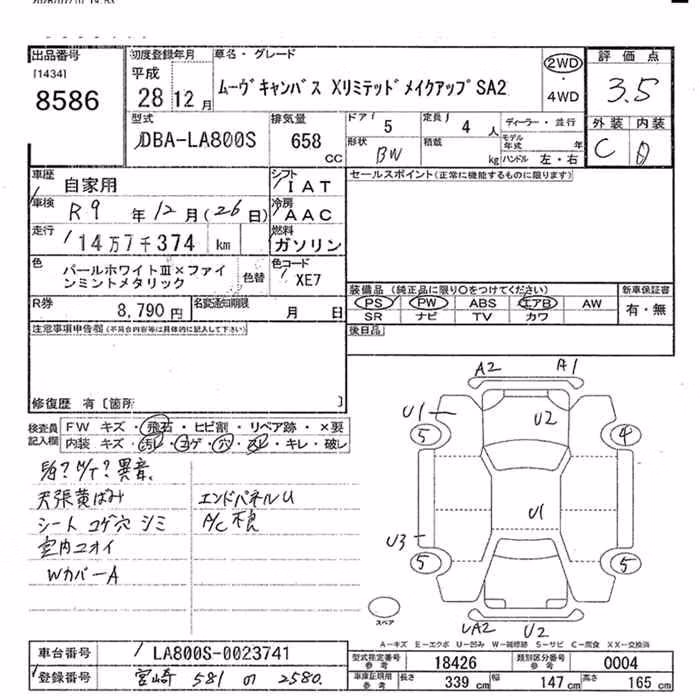 出品番号
[1434]
8586
初度登録年月
平成
28 12月
車名・グレード
ムーヴキャンバス XリミテッドメイクアップSA2
2WD
・
4WD
評価点
3.5
型式
DBA-LA800S
排気量
658
CC
ドア 5
形状 BW
定員 4 人
積載 kg
ディーラー・並行
モデル年式 年
ハンドル 左・右
外装 内装
C D
車歴
自家用
シフト
IAT
車検
R9 年 12 月(26 日)
冷房
AAC
走行
14万7千374 km
燃料
ガソリン
色
パールホワイトⅢ×ファインミントメタリック
色替
色コード
XE7
R券
8,790 円
名変通知期限
月 日
セールスポイント(正常に機能するものに限ります)
装備品 (純正品に限り〇をつけてください)
PS PW ABS エアB AW
SR ナビ TV カワ
新車保証書
有・無
後日品
注意事項申告欄(不具合内容等は具体的に記入して下さい)
修復歴 有〔箇所 〕
検査員記入欄
FW キズ・飛石・ヒビ割・リペア跡・×要
内装 キズ・汚レ・コゲ・穴・スレ・キレ・破レ
異音
天張黄ばみ
シート コゲ穴 シミ
室内ニオイ
WカバーA
エンドパネルU
A/C不良
A2 A1
U1
5 4
U2
U1
U3
5 5
UA2 U2
スペア
A-キズ E-エクボ U-凹み W-補修跡 S-サビ C-腐食 XX-交換済
車台番号
LA800S-0023741
登録番号
宮崎 581 の 2580
型式指定番号
参考
18426
類別区分番号
参考
0004
車庫証明用
参考
長さ 339 cm 幅 147 cm 高さ 165 cm